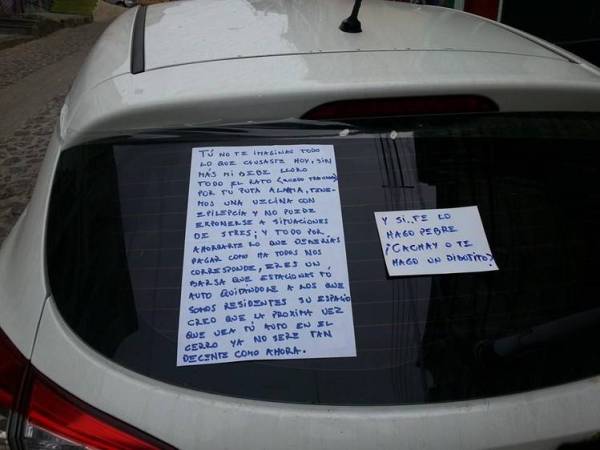 TÚ NO TE IMAGINAS TODO
LO QUE CAUSASTE HOY, SIN
MAS MI BEBE LLORO
TODO EL RATO (QUEDO TRAUMADO)
POR TU PUTA ALARMA, TENE-
MOS UNA VECINA CON
EPILEPCIA Y NO PUEDE
EXPONERSE A SITUACIONES
DE STRES; Y TODO POR
AHORRARTE LO QUE DEBERÍAS
PAGAR COMO HA TODOS NOS
CORRESPONDE, ERES UN
BARSA QUE ESTACIONAS TÚ
AUTO QUITÁNDOLE A LOS QUE
SOMOS RESIDENTES SU ESPACIO
CREO QUE LA PROXIMA VEZ
QUE VEA TÚ AUTO EN EL
CERRO YA NO SERE TAN
DECENTE COMO AHORA.
Y SI TE LO
HAGO PEBRE
¡CACHAY O TE
HAGO UN DIBUJITO?